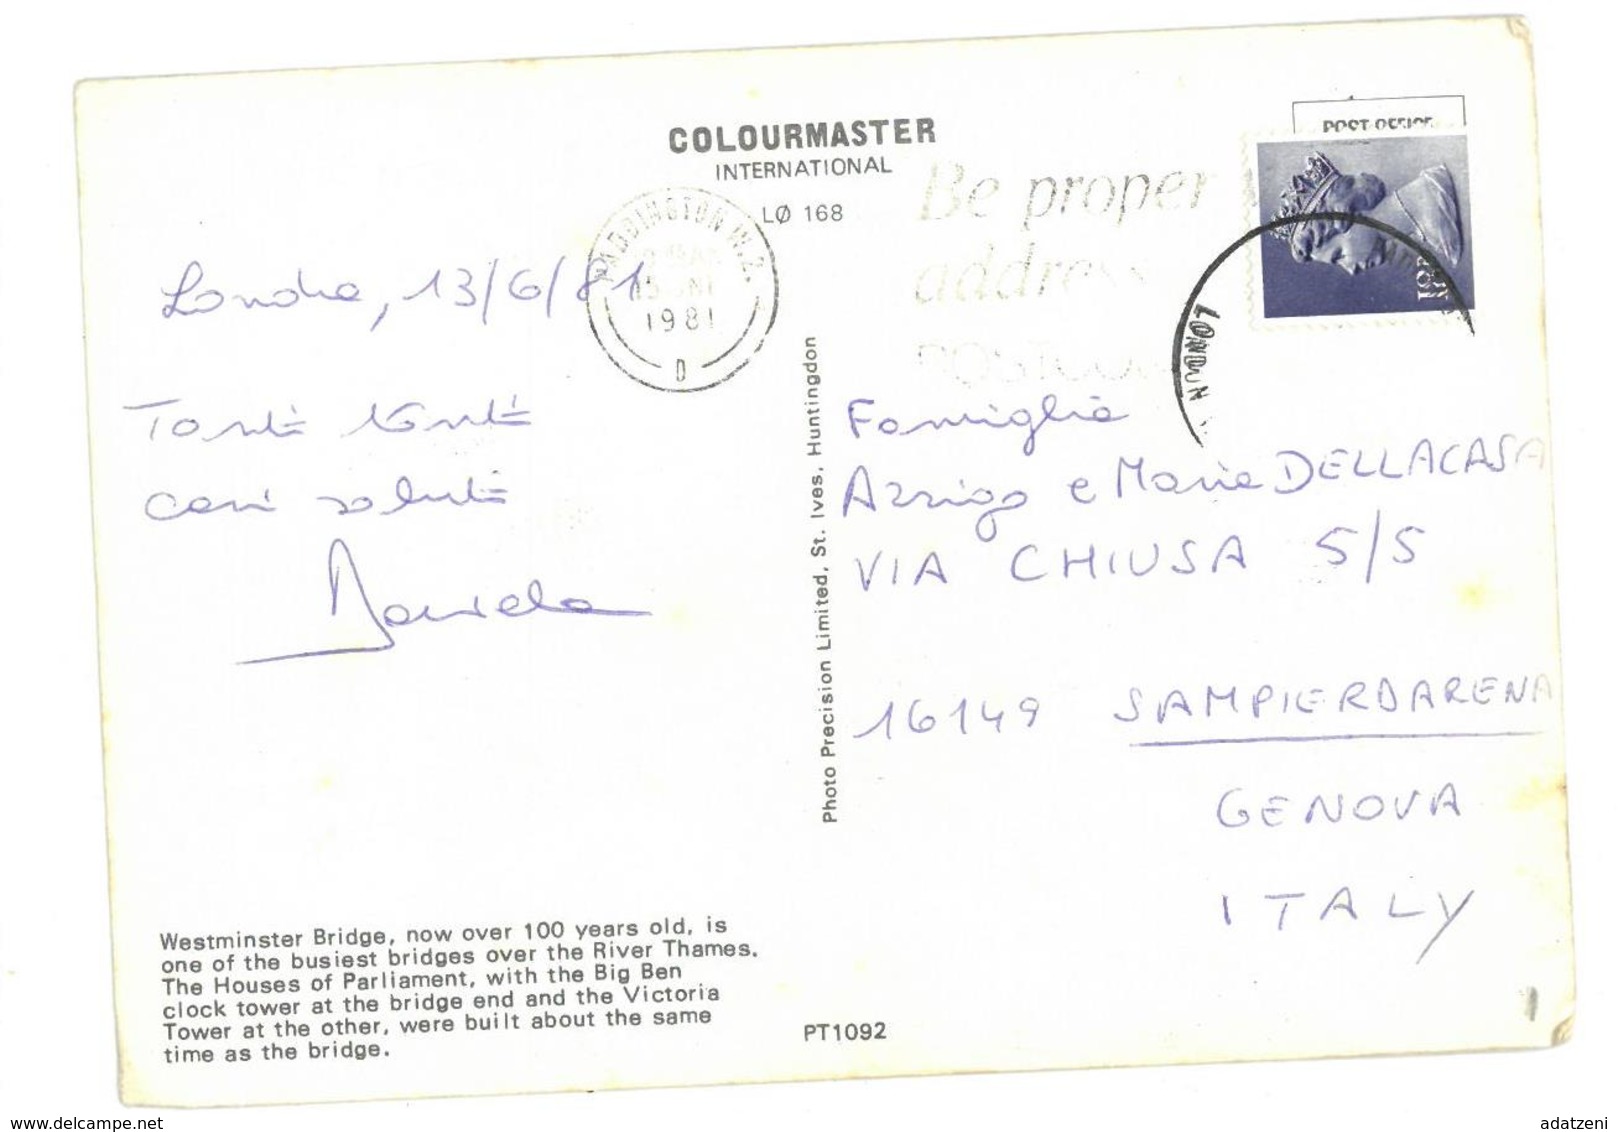 COLOURMASTER
INTERNATIONAL
LØ 168
POST OFFICE
Be proper
address
POSTCO
PADDINGTON W.2.
1981
D
LONDON
Londra, 13/6/81
Tanti tanti
cari saluti
Daniela
Photo Precision Limited, St. Ives, Huntingdon
Famiglia
Arrigo e Maria DELLACASA
VIA CHIUSA 5/5
16149 SAMPIERDARENA
GENOVA
ITALY
Westminster Bridge, now over 100 years old, is
one of the busiest bridges over the River Thames.
The Houses of Parliament, with the Big Ben
clock tower at the bridge end and the Victoria
Tower at the other, were built about the same
time as the bridge.
PT1092
www.delcampe.net
adatzeni